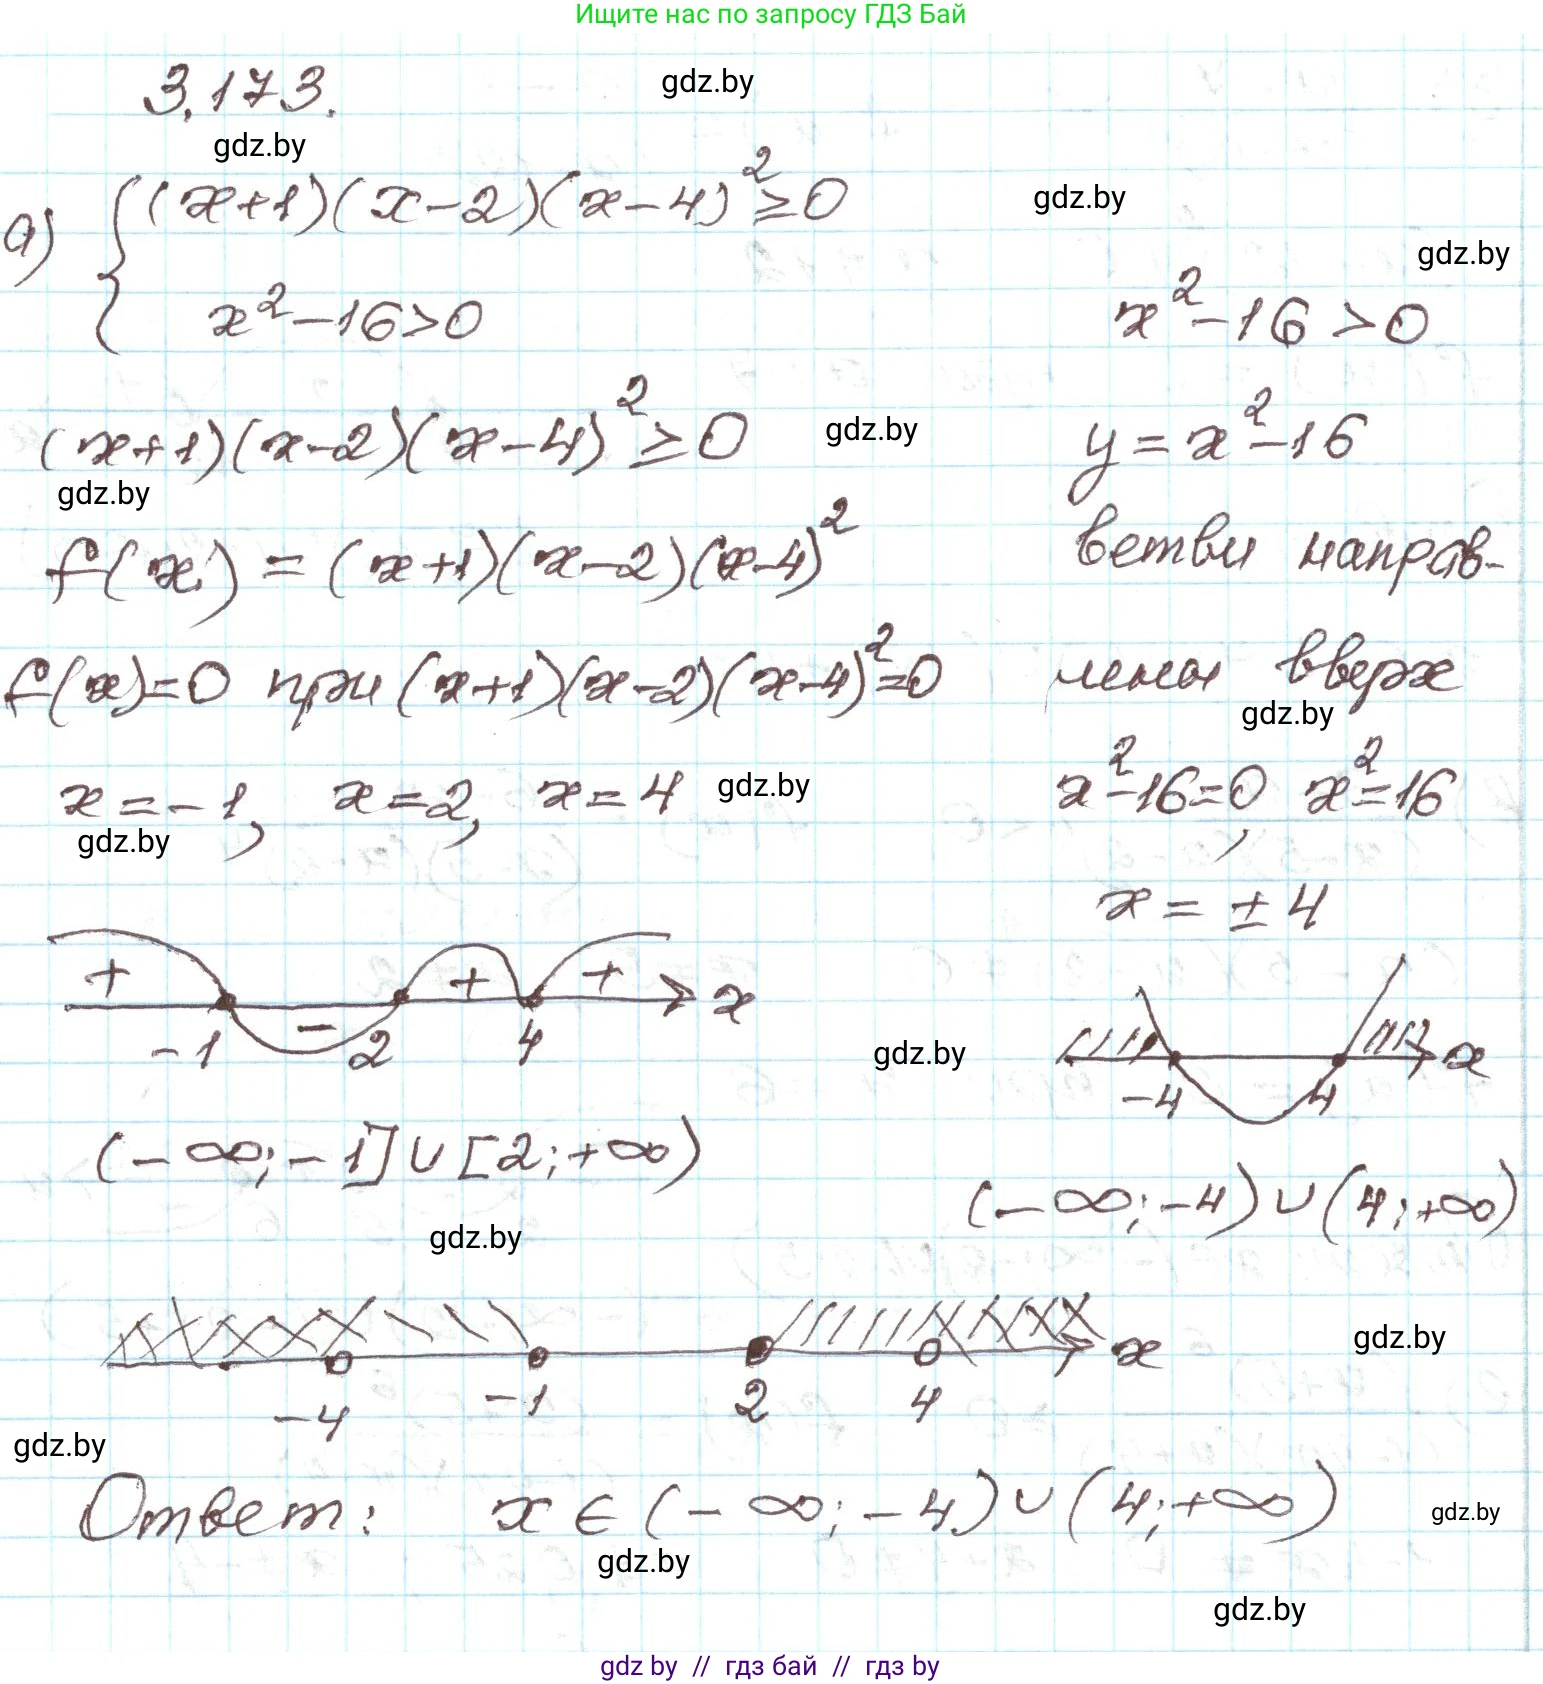 Ищите нас по запросу ГДЗ Бай
3.173.
gdz.by
gdz.by
а) { (x+1)(x-2)(x-4)² ≥ 0
x² - 16 > 0
gdz.by
gdz.by
(x+1)(x-2)(x-4)² ≥ 0
gdz.by
gdz.by
f(x) = (x+1)(x-2)(x-4)²
f(x)=0 при (x+1)(x-2)(x-4)²=0
x = -1, x = 2, x = 4
gdz.by
gdz.by
+ - + + x
-1 2 4
(-∞; -1] ∪ [2; +∞)
gdz.by
x² - 16 > 0
y = x² - 16
ветви направ-
лены вверх
gdz.by
x² - 16 = 0, x² = 16
x = ± 4
gdz.by
-4 4 x
(-∞; -4) ∪ (4; +∞)
gdz.by
x
-4 -1 2 4
gdz.by
Ответ: x ∈ (-∞; -4) ∪ (4; +∞)
gdz.by
gdz.by
gdz.by
gdz by // гдз бай // гдз by